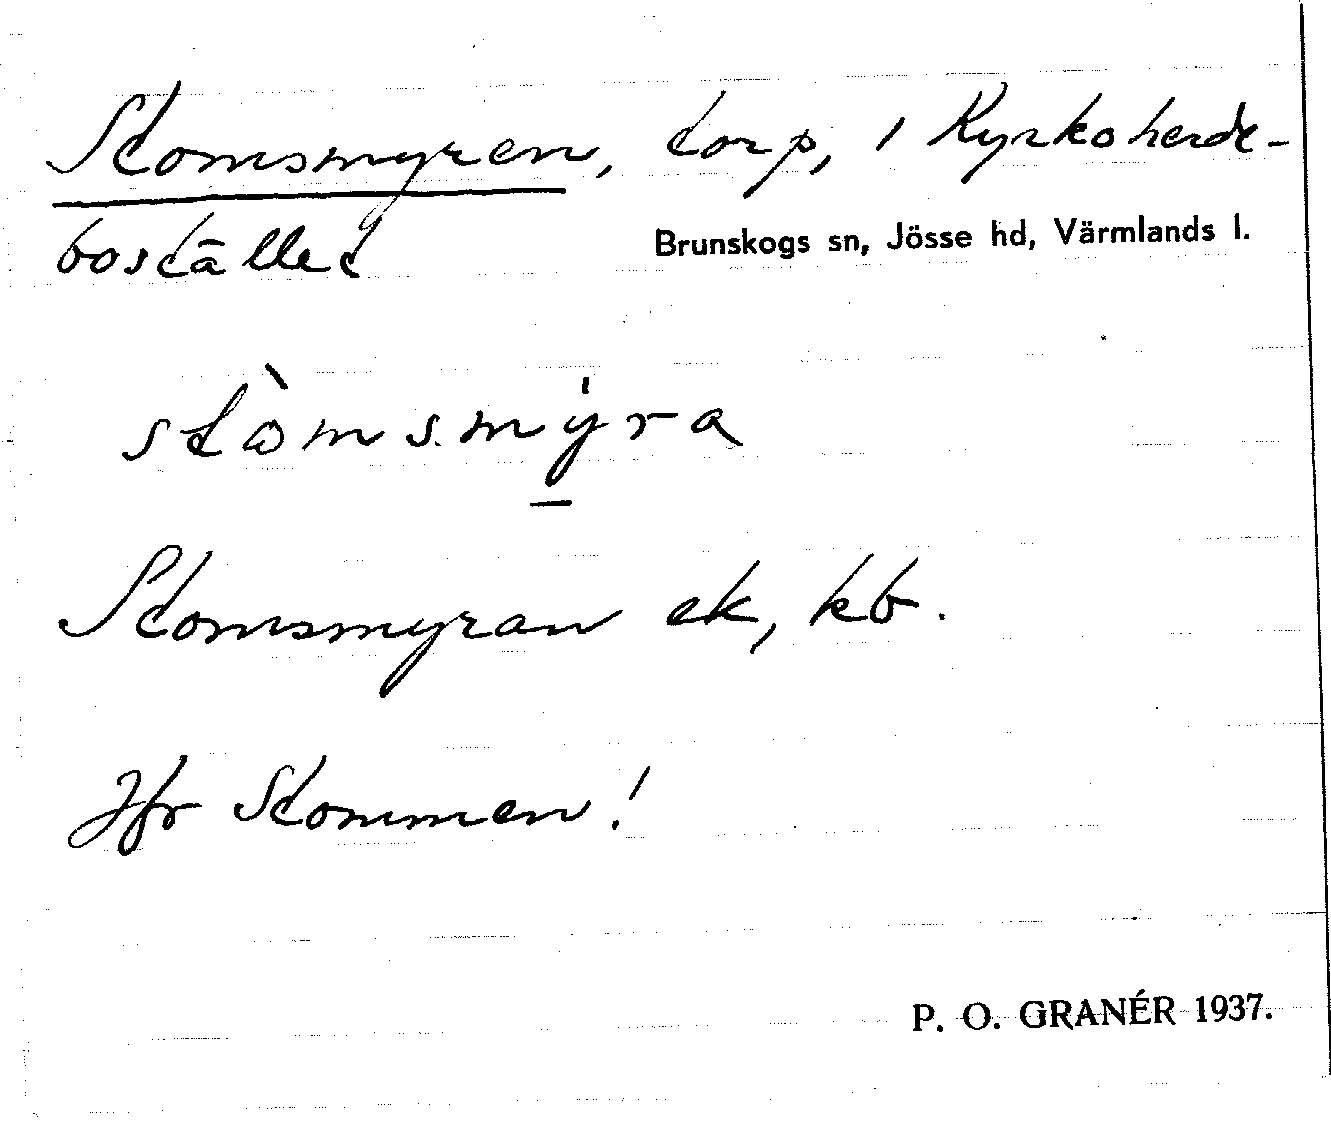 Stomsmyren, torp, i Kyrkoherde-
bostället
Brunskogs sn, Jösse hd, Värmlands l.
stòmsmy̠̍ra
Stomsmyran ek, kb.
Jfr Stommen!
P. O. GRANÉR 1937.